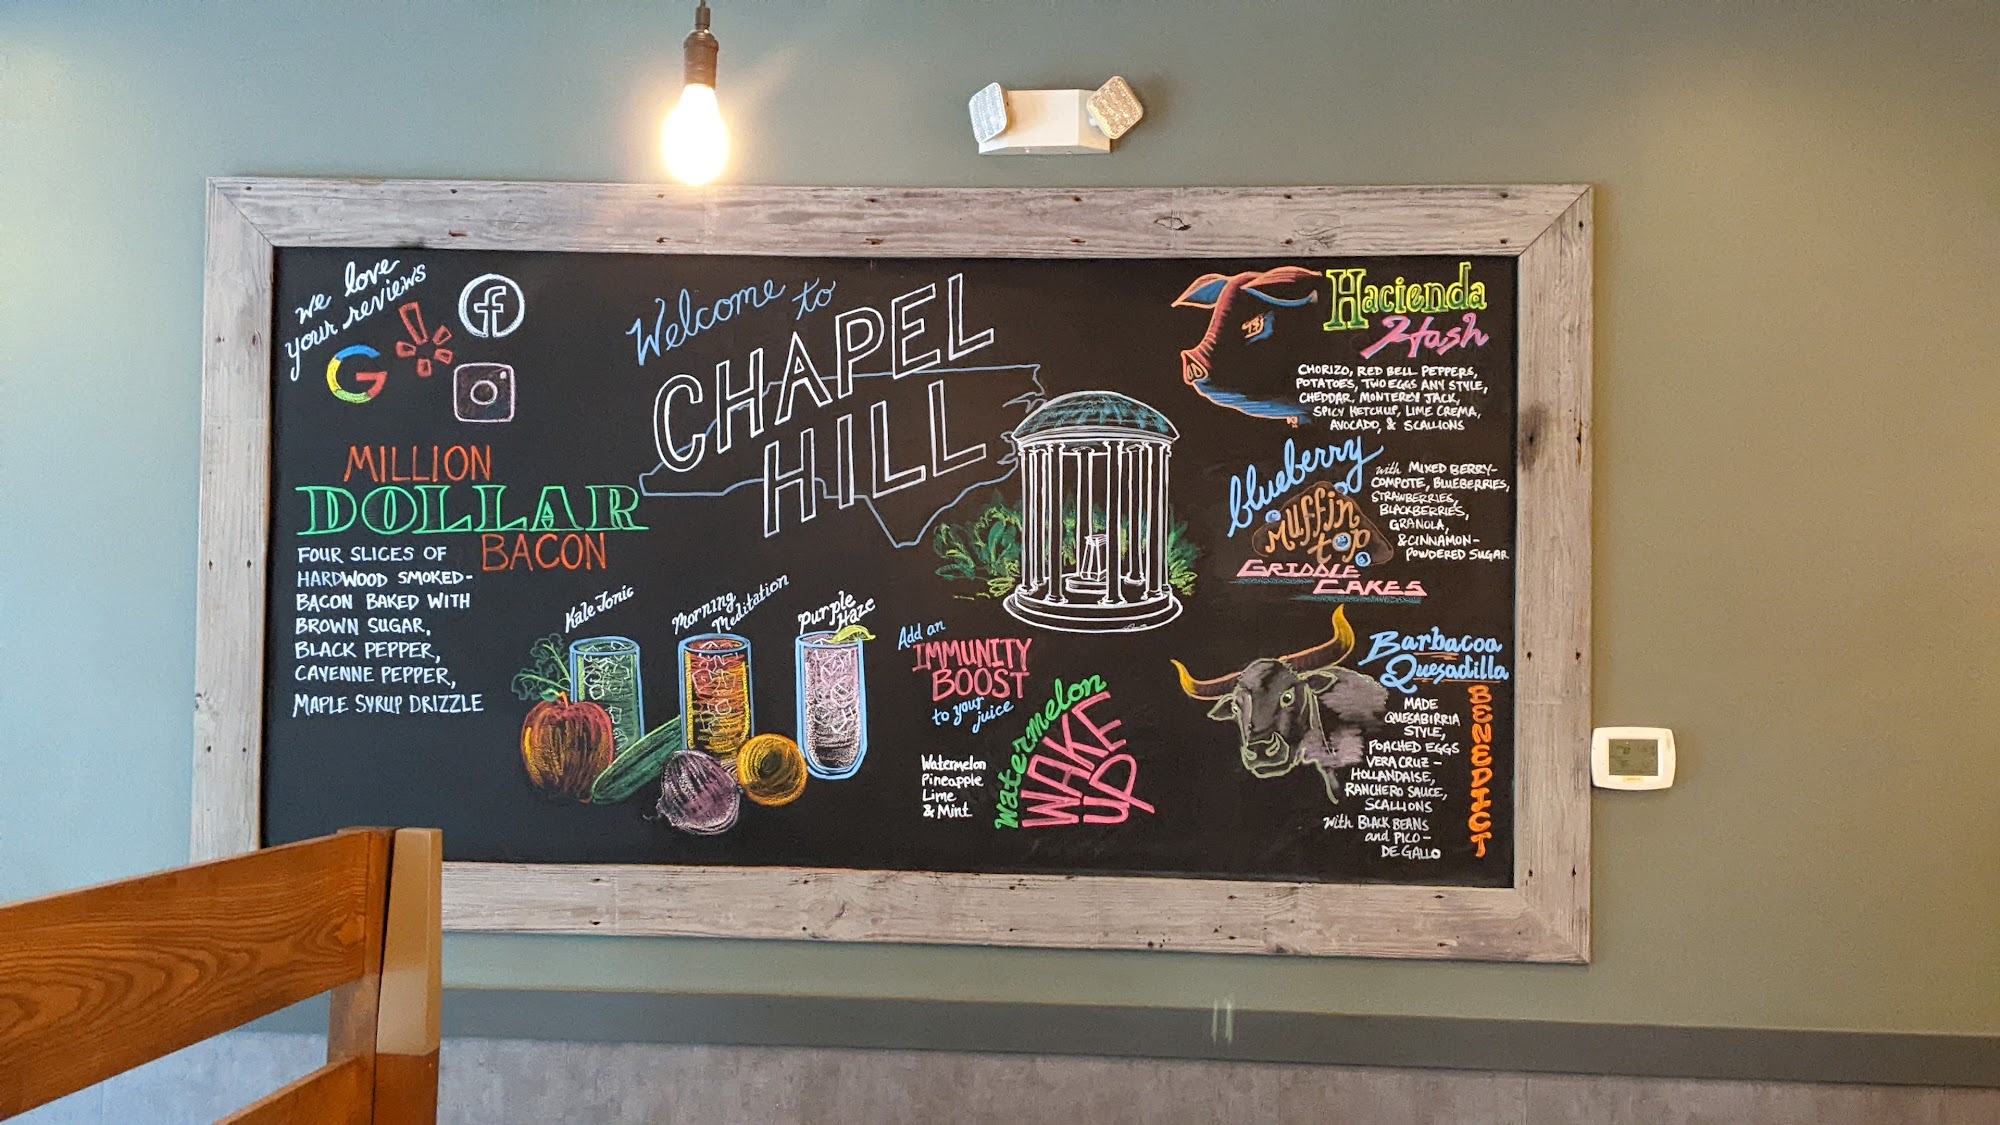 we love
your reviews
G
f
MILLION
DOLLAR
BACON
FOUR SLICES OF
HARDWOOD SMOKED-
BACON BAKED WITH
BROWN SUGAR,
BLACK PEPPER,
CAYENNE PEPPER,
MAPLE SYRUP DRIZZLE
Welcome to
CHAPEL
HILL
Kale Tonic
Morning
Meditation
Purple
Haze
Add an
IMMUNITY
BOOST
to your
juice
Watermelon
Pineapple
Lime
& Mint
Watermelon
WAKE
UP
Hacienda
Hash
CHORIZO, RED BELL PEPPERS,
POTATOES, TWO EGGS ANY STYLE,
CHEDDAR, MONTEREY JACK,
SPICY KETCHUP, LIME CREMA,
AVOCADO, & SCALLIONS
blueberry
Muffin
top
GRIDDLE
CAKES
with MIXED BERRY-
COMPOTE, BLUEBERRIES,
STRAWBERRIES,
BLACKBERRIES,
GRANOLA,
& CINNAMON-
POWDERED SUGAR
Barbacoa
Quesadilla
BENEDICT
MADE
QUESABIRRIA
STYLE,
POACHED EGGS
VERA CRUZ-
HOLLANDAISE,
RANCHERO SAUCE,
SCALLIONS
with BLACK BEANS
and PICO-
DE GALLO